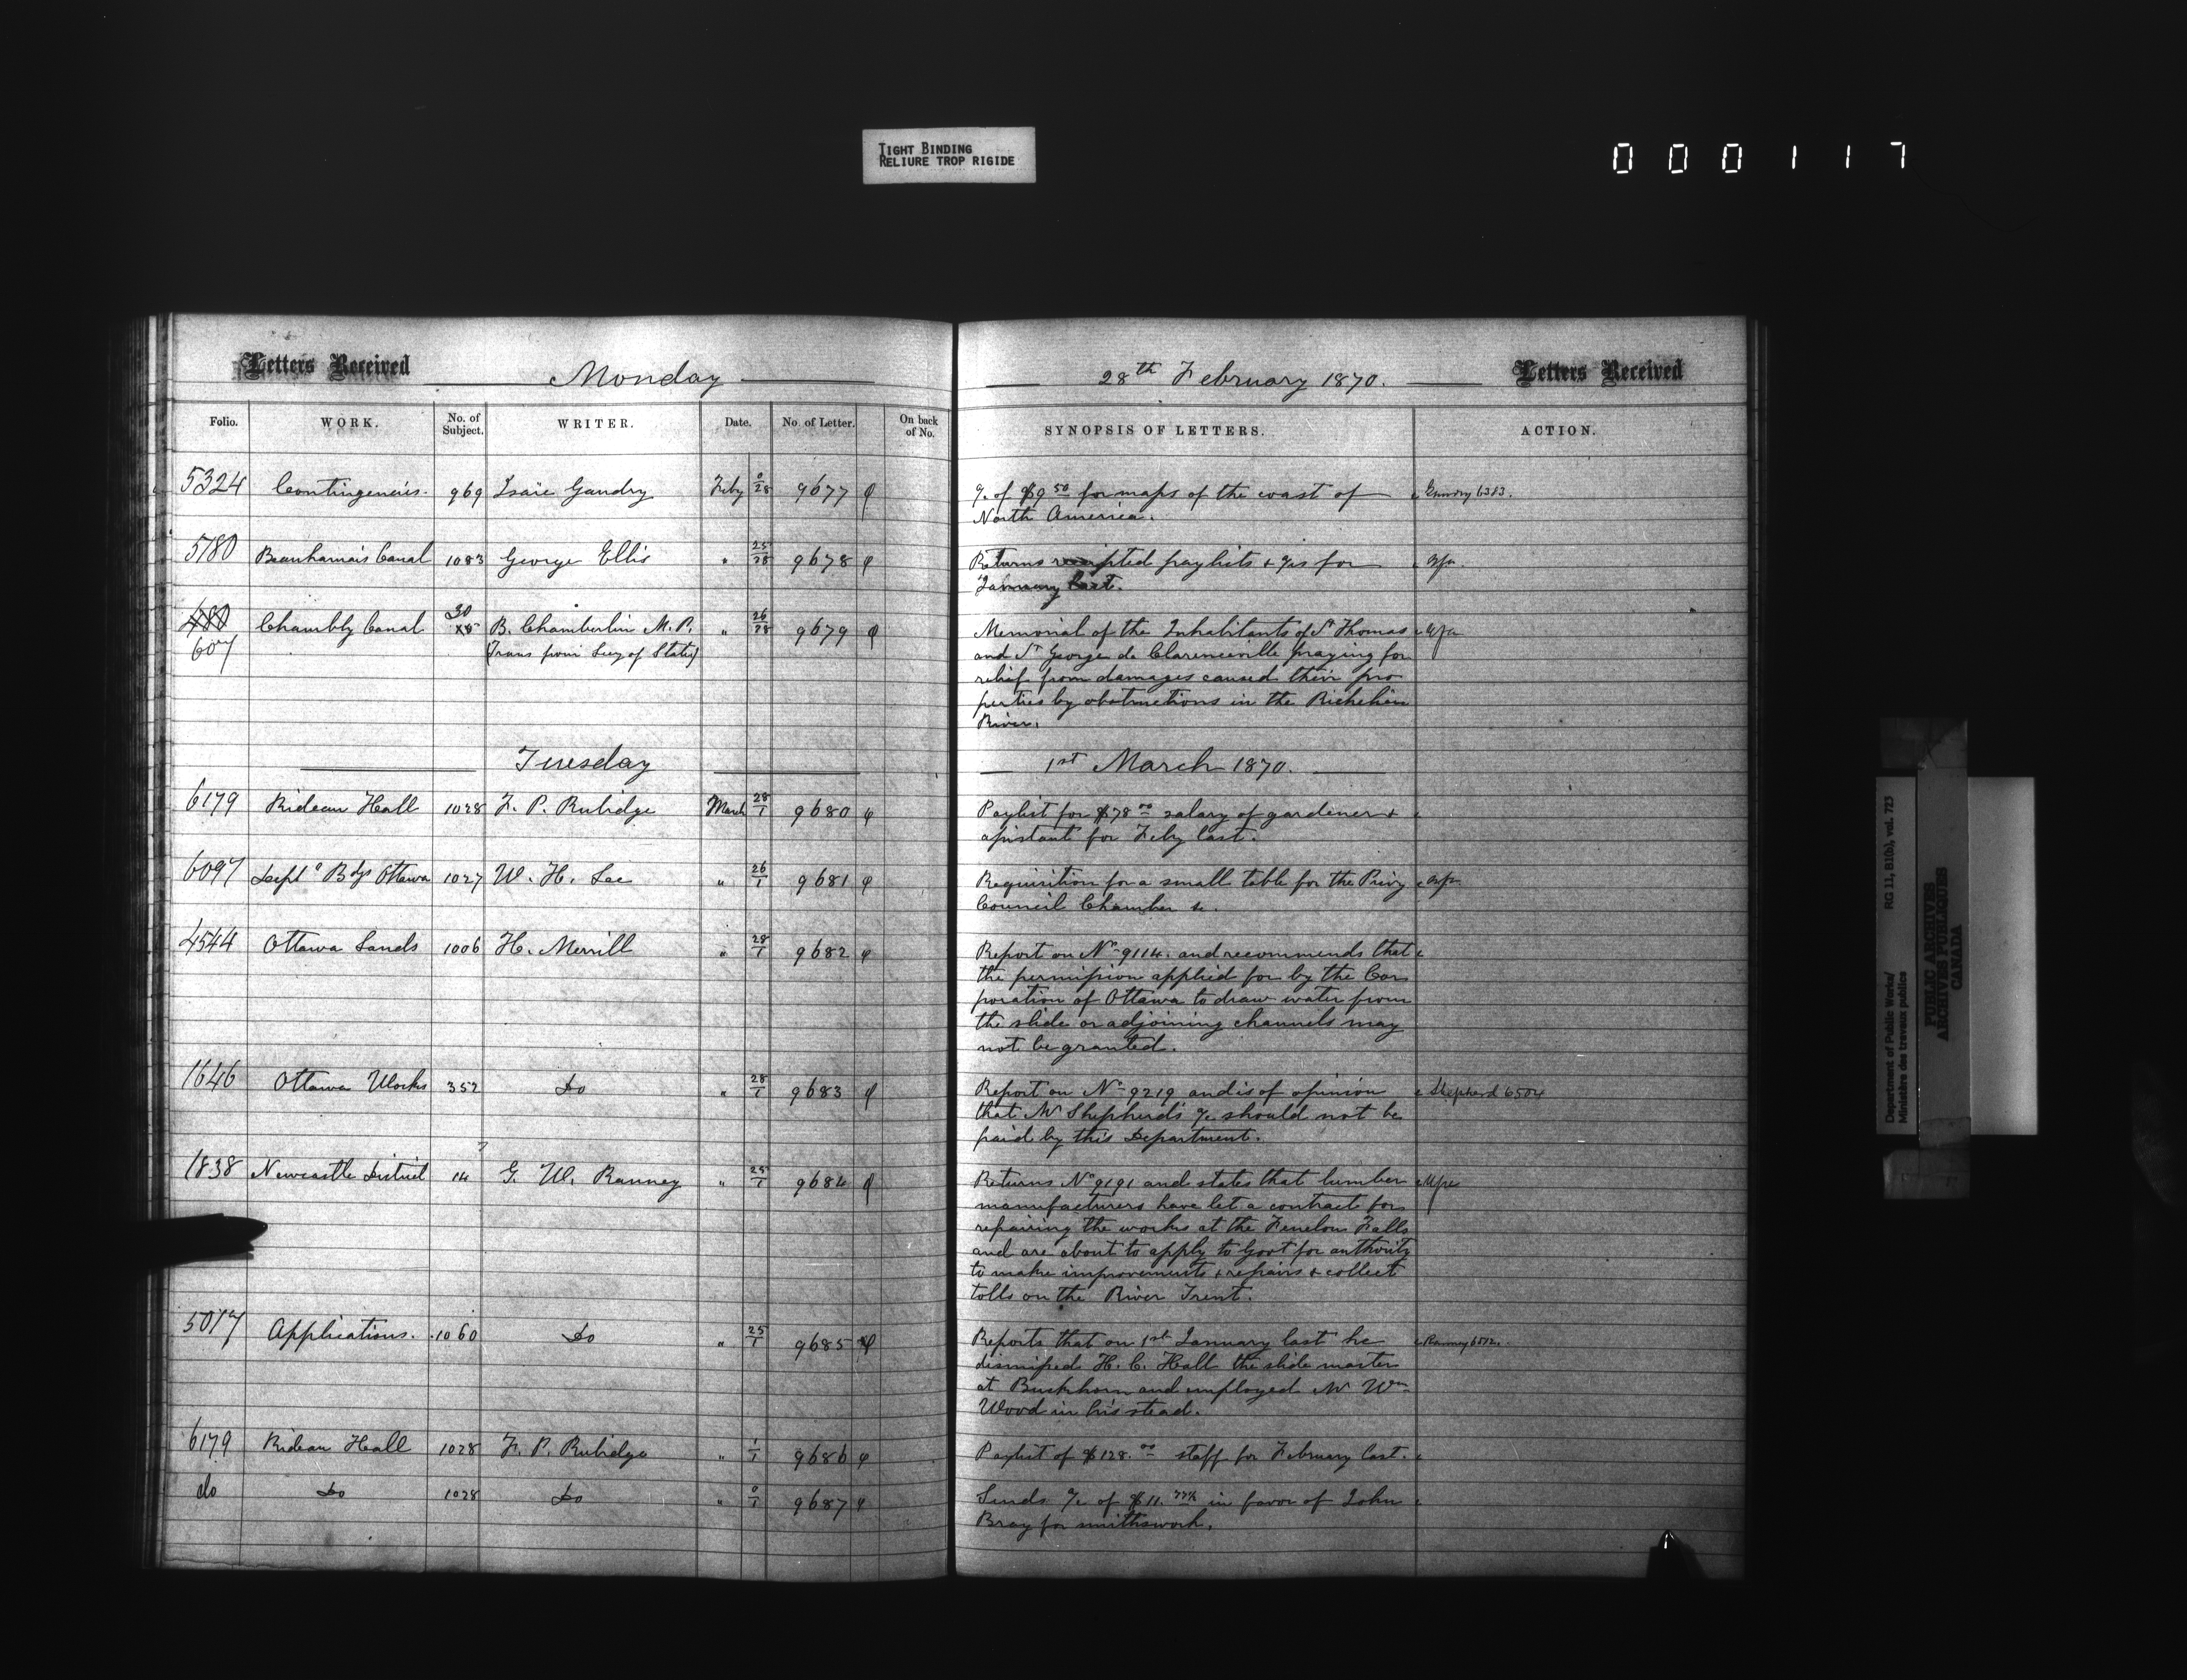 TIGHT BINDING
RELIURE TROP RIGIDE
000117
Letters Received
Monday
28th February 1870.
Letters Received
Folio. WORK. No. of Subject. WRITER. Date. No. of Letter. On back of No. SYNOPSIS OF LETTERS. ACTION.
5324 Contingencies. 969 Isaïe Gaudry Feby 0/28 9677 a/c of $9 50 for maps of the coast of
North America.
5780 Beauharnois Canal 1083 George Ellis " 25/28 9678 Returns receipted paylists + a/cs for
January last.
480 Chambly Canal 30 B. Chamberlin M.P. " 26/28 9679 Memorial of the Inhabitants of St Thomas
607 (Trans from Secy of State) and St George de Clarenceville praying for
relief from damages caused their pro
perties by obstructions in the Richelieu
River.
Tuesday
1st March 1870.
6179 Rideau Hall 1028 F. P. Rubidge March 28/1 9680 Paylist for $78 00 salary of gardener +
assistant for Feby last.
6097 Deptl Bdgs Ottawa 1027 W. H. Lee " 26/1 9681 Requisition for a small table for the Privy
Council Chamber &c.
4544 Ottawa Lands 1006 H. Merrill " 28/1 9682 Report on No 9114. and recommends that
the permission applied for by the Cor
poration of Ottawa to draw water from
the slide or adjoining channels may
not be granted.
1646 Ottawa Works 352 Do " 28/1 9683 Report on No 9219 and is of opinion Shepherd 6504
that Mr Shepherd's a/c should not be
paid by this Department.
7
1838 Newcastle District 14 G. W. Ranney " 25/1 9684 Returns No 9191 and states that lumber
manufacturers have let a contract for
repairing the works at the Fenelon Falls
and are about to apply to Govt for authority
to make improvements + repairs + collect
tolls on the River Trent.
5017 Applications. 1060 Do " 25/1 9685 Reports that on 1st January last he Ranney 6512.
dismissed H. C. Hall the slide master
at Buckhorn and employed Mr Wm
Wood in his stead.
6179 Rideau Hall 1028 F. P. Rubidge " 1/1 9686 Paylist of $128. 00 staff for February last.
do Do 1028 Do " 0/1 9687 Sends a/c of $11. in favor of John
Bray for smithswork.
Department of Public Works/
Ministère des travaux publics
RG 11, B1(b), vol. 723
PUBLIC ARCHIVES
ARCHIVES PUBLIQUES
CANADA